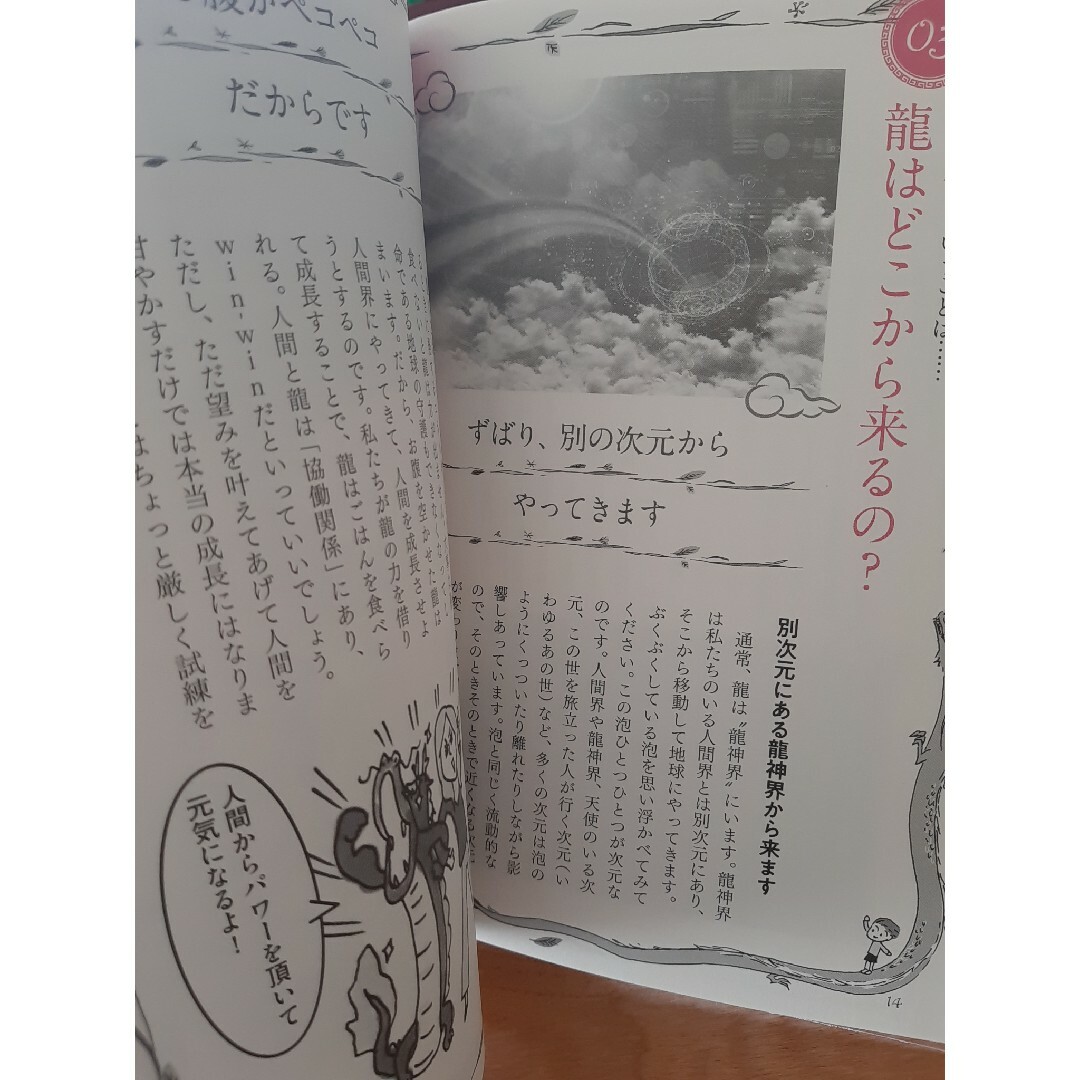 03
龍はどこから来るの？
ずばり、別の次元から
やってきます
別次元にある龍神界から来ます
通常、龍は〝龍神界〟にいます。龍神界
は私たちのいる人間界とは別次元にあり、
そこから移動して地球にやってきます。
ぶくぶくしている泡を思い浮かべてみて
ください。この泡ひとつひとつが次元な
のです。人間界や龍神界、天使のいる次
元、この世を旅立った人が行く次元（い
わゆるあの世）など、多くの次元は泡の
ようにくっついたり離れたりしながら影
響しあっています。泡と同じく流動的な
ので、そのときそのときで近くなる次元
が変
14
腹がペコペコ
だからです
食べないと龍は力が
命である地球の守護もできなくなって
まいます。だから、お腹を空かせた龍は
人間界にやってきて、人間を成長させよ
うとするのです。私たちが龍の力を借り
て成長することで、龍はごはんを食べら
れる。人間と龍は「協働関係」にあり、
win-winだといっていいでしょう。
ただし、ただ望みを叶えてあげて人間を
甘やかすだけでは本当の成長にはなりま
はちょっと厳しく試練を
人間からパワーを頂いて
元気になるよ！